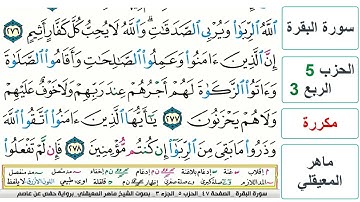 سورة البقرة
الحزب 5
الربع 3
مكررة
ماهر
المعيقلي
ٱللَّهُ ٱلرِّبَوٰا۟ وَيُرْبِى ٱلصَّدَقَـٰتِ ۗ وَٱللَّهُ لَا يُحِبُّ كُلَّ كَفَّارٍ أَثِيمٍ ٢٧٦
إِنَّ ٱلَّذِينَ ءَامَنُوا۟ وَعَمِلُوا۟ ٱلصَّـٰلِحَـٰتِ وَأَقَامُوا۟ ٱلصَّلَوٰةَ
وَءَاتَوُا۟ ٱلزَّكَوٰةَ لَهُمْ أَجْرُهُمْ عِندَ رَبِّهِمْ وَلَا خَوْفٌ عَلَيْهِمْ
وَلَا هُمْ يَحْزَنُونَ ٢٧٧ يَـٰٓأَيُّهَا ٱلَّذِينَ ءَامَنُوا۟ ٱتَّقُوا۟ ٱللَّهَ
وَذَرُوا۟ مَا بَقِىَ مِنَ ٱلرِّبَوٰٓا۟ إِن كُنتُم مُّؤْمِنِينَ ٢٧٨ فَإِن لَّمْ تَفْعَلُوا۟
سورة البقرة . الصفحة ٤٧ . الحزب ٥ . الجزء ٣ . بصوت الشيخ ماهر المعيقلي . برواية حفص عن عاصم